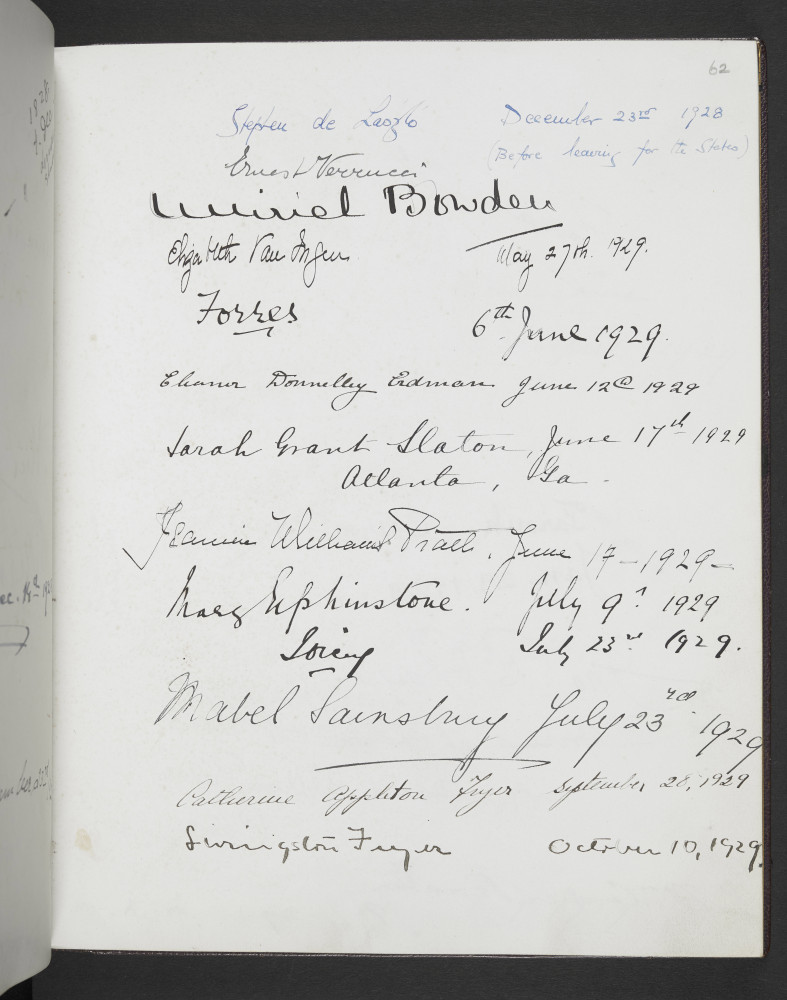 62
Stephen de László December 23rd 1928
(Before leaving for the States)
Ernest Verrucci
Muriel Bowden
Elizabeth Van Ingen May 27th. 1929.
Forres 6th June 1929.
Eleanor Donnelley Erdman June 12 1929
Sarah Grant Slaton, June 17th 1929
Atlanta, Ga.
Williams Pratt. June 17-1929-
Mary Elphinstone. July 9. 1929
Joicey July 23rd 1929.
Mabel Sainsbury July 23rd 1929
Catherine Appleton Fryer September 28, 1929
Livingston Fryer October 10, 1929.